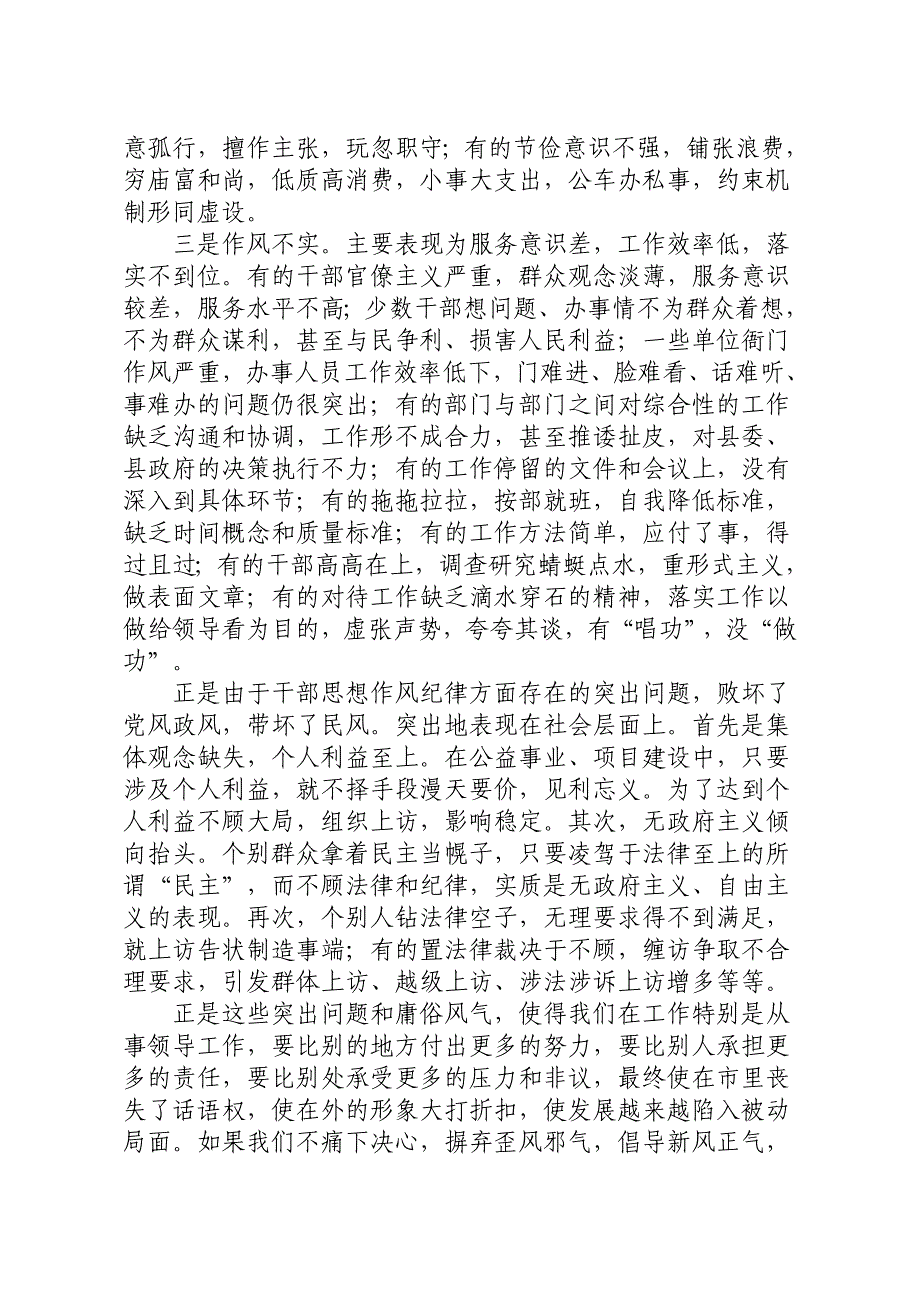 意孤行，擅作主张，玩忽职守；有的节俭意识不强，铺张浪费，
穷庙富和尚，低质高消费，小事大支出，公车办私事，约束机
制形同虚设。
三是作风不实。主要表现为服务意识差，工作效率低，落
实不到位。有的干部官僚主义严重，群众观念淡薄，服务意识
较差，服务水平不高；少数干部想问题、办事情不为群众着想，
不为群众谋利，甚至与民争利、损害人民利益；一些单位衙门
作风严重，办事人员工作效率低下，门难进、脸难看、话难听、
事难办的问题仍很突出；有的部门与部门之间对综合性的工作
缺乏沟通和协调，工作形不成合力，甚至推诿扯皮，对县委、
县政府的决策执行不力；有的工作停留的文件和会议上，没有
深入到具体环节；有的拖拖拉拉，按部就班，自我降低标准，
缺乏时间概念和质量标准；有的工作方法简单，应付了事，得
过且过；有的干部高高在上，调查研究蜻蜓点水，重形式主义，
做表面文章；有的对待工作缺乏滴水穿石的精神，落实工作以
做给领导看为目的，虚张声势，夸夸其谈，有“唱功”，没“做
功”。
正是由于干部思想作风纪律方面存在的突出问题，败坏了
党风政风，带坏了民风。突出地表现在社会层面上。首先是集
体观念缺失，个人利益至上。在公益事业、项目建设中，只要
涉及个人利益，就不择手段漫天要价，见利忘义。为了达到个
人利益不顾大局，组织上访，影响稳定。其次，无政府主义倾
向抬头。个别群众拿着民主当幌子，只要凌驾于法律至上的所
谓“民主”，而不顾法律和纪律，实质是无政府主义、自由主
义的表现。再次，个别人钻法律空子，无理要求得不到满足，
就上访告状制造事端；有的置法律裁决于不顾，缠访争取不合
理要求，引发群体上访、越级上访、涉法涉诉上访增多等等。
正是这些突出问题和庸俗风气，使得我们在工作特别是从
事领导工作，要比别的地方付出更多的努力，要比别人承担更
多的责任，要比别处承受更多的压力和非议，最终使在市里丧
失了话语权，使在外的形象大打折扣，使发展越来越陷入被动
局面。如果我们不痛下决心，摒弃歪风邪气，倡导新风正气，